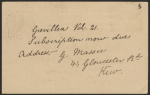 5
Grevillea Vol. 21.
Subscription now due
Address G. Massee
41 Gloucester Rd.
Kew